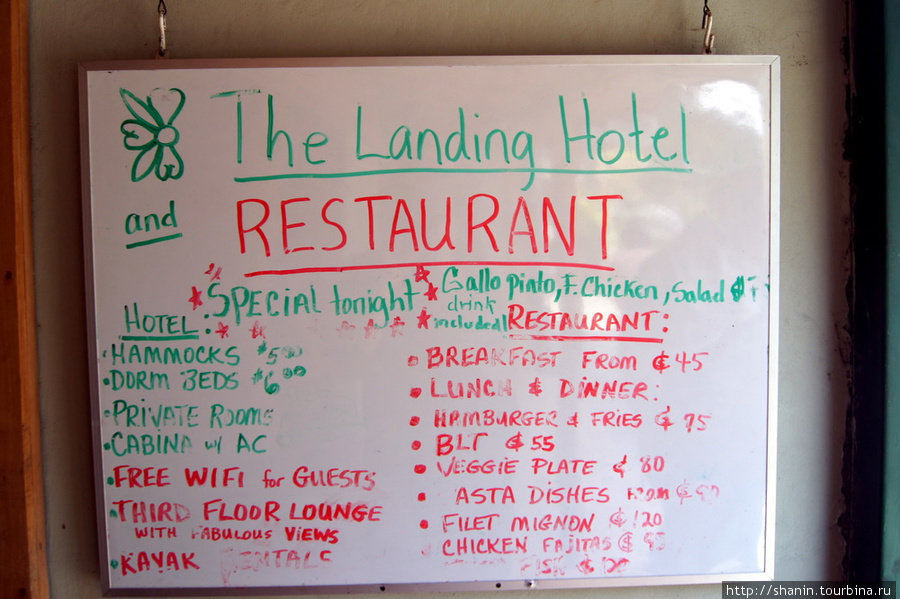 The Landing Hotel
and RESTAURANT
SPECIAL tonight Gallo pinto, F. Chicken, Salad
drink included!
HOTEL:
• HAMMOCKS $5.00
• DORM BEDS $6.00
• PRIVATE ROOMS
• CABINA w/ AC
• FREE WIFI for GUESTS
• THIRD FLOOR LOUNGE
WITH FABULOUS VIEWS
• KAYAK RENTALS
RESTAURANT:
• BREAKFAST FROM ₡45
• LUNCH & DINNER:
• HAMBURGER & FRIES ₡
• BLT ₡55
• VEGGIE PLATE ₡80
• ASTA DISHES FROM ₡
• FILET MIGNON ₡120
• CHICKEN FAJITAS ₡
http://shanin.tourbina.ru